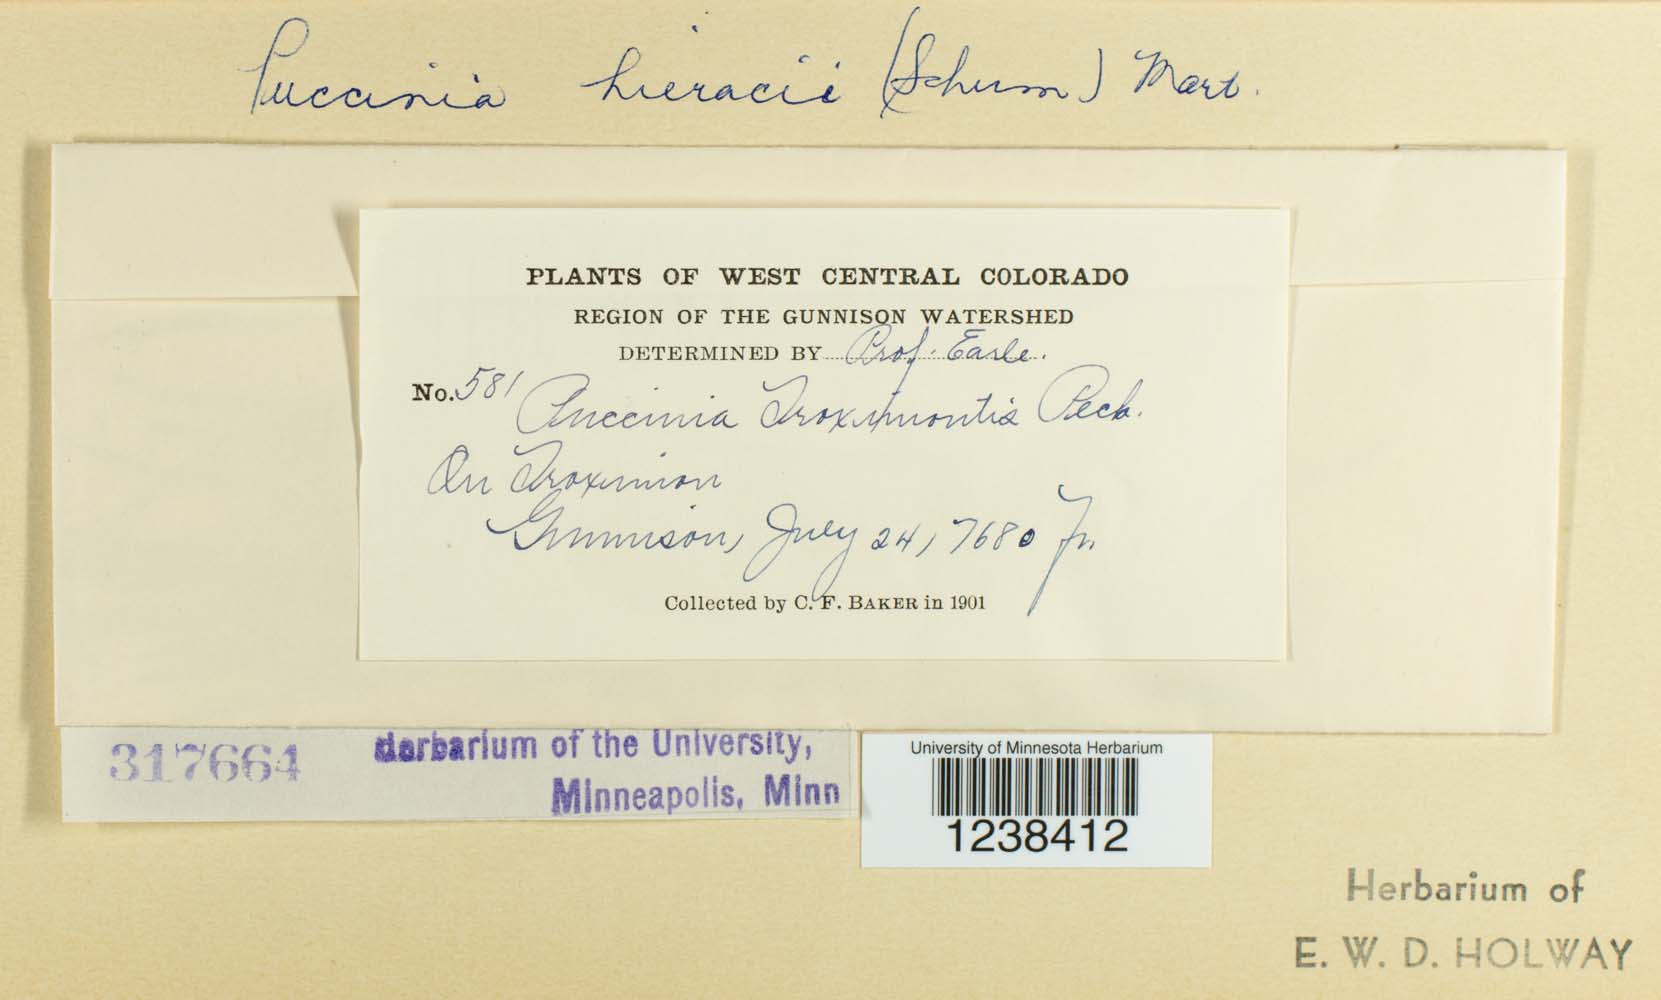 Puccinia hieracii (Schum) Mart.
PLANTS OF WEST CENTRAL COLORADO
REGION OF THE GUNNISON WATERSHED
DETERMINED BY Prof. Earle.
No. 581 Puccinia Troximontis Peck.
On Troximon
Gunnison, July 24, 7680 ft.
Collected by C. F. BAKER in 1901
317664
Herbarium of the University,
Minneapolis, Minn
University of Minnesota Herbarium
1238412
Herbarium of
E. W. D. HOLWAY